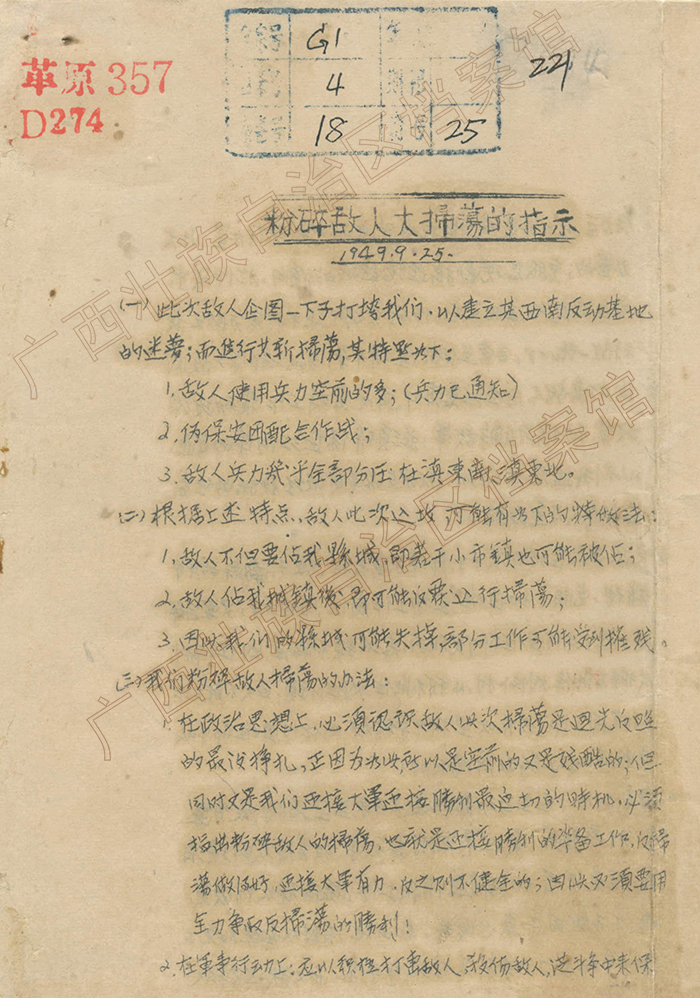 革原 357
D274
G1
4
18
25
221
粉碎敌人大掃蕩的指示
1949.9.25.
(一)此次敌人企图一下子打垮我们,以建立其西南反动基地
的迷夢;而進行其新掃蕩,其特点如下:
1.敌人使用兵力空前的多;(兵力已通知)
2.伪保安团配合作战;
3.敌人兵力几乎全部分压在滇東南、滇東北。
(二)根据上述特点,敌人此次進攻可能有如下的特做法:
1.敌人不但要佔我縣城,即若干小市镇也可能被佔;
2.敌人佔我城镇後,即可能反覆進行掃蕩;
3.因此我们的縣城可能失掉,部分工作可能受到摧残。
(三)我们粉碎敌人掃蕩的办法:
1.在政治思想上,必須認识敌人此次掃蕩是迴光返照
的最後掙扎,正因为如此,所以是空前的又是残酷的;但
同时又是我们迎接大軍迎接勝利最迫切的時机,必須
指出粉碎敌人的掃蕩,也就是迎接勝利的準备工作,反掃
蕩做得好,迎接大軍有力,反之则不健全的;因此必須要用
全力争取反掃蕩的勝利!
2.在軍事行动上:应以积極打击敌人,殺伤敌人,従斗争中来保
广西壮族自治区档案馆
广西壮族自治区档案馆